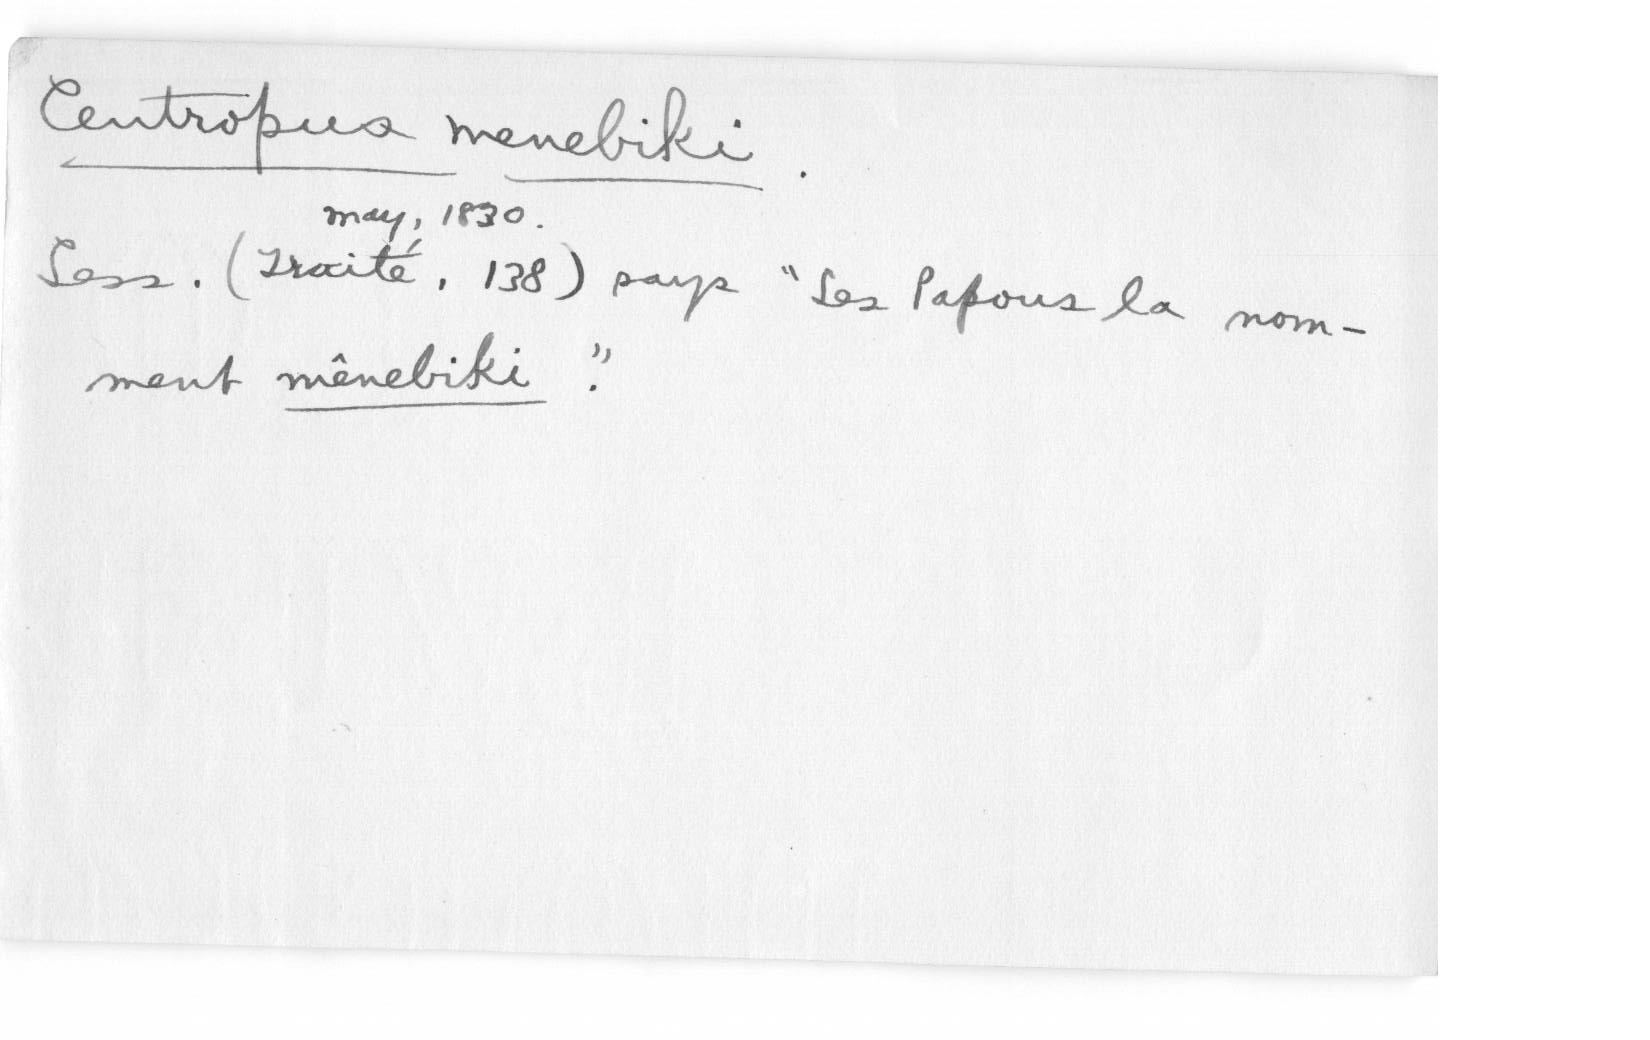 Centropus menebiki.
may, 1830.
Less. (Traité, 138) says "Les Papous la nom-
ment mênebiki."